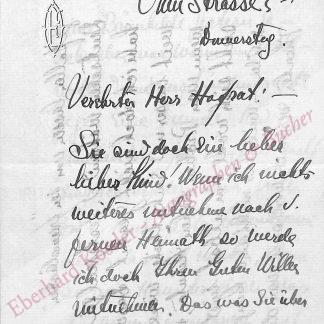 Donnerstag.
Verehrter Herr Hofrat! —
Sie sind doch ein lieber
lieber Kind! Wenn ich nichts
weiteres mitnehme nach d.
fernen Heimath so werde
ich doch Ihren Guten Willen
mitnehmen. Das was Sie über
Eberhard Köstler Autographen & Bücher